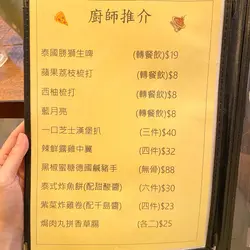 廚師推介
泰國勝獅生啤 (轉餐飲)$19
蘋果荔枝梳打 (轉餐飲)$8
西柚梳打 (轉餐飲)$8
藍月亮 (轉餐飲)$8
一口芝士漢堡扒 (三件)$40
辣鮮露雞中翼 (四件)$32
黑椒蜜糖德國鹹豬手 (無骨)$88
泰式炸魚餅(配甜酸醬) (六件)$30
紫菜炸雞卷(配千島醬) (四件)$23
焗肉丸拼香草腸 (各二)$25